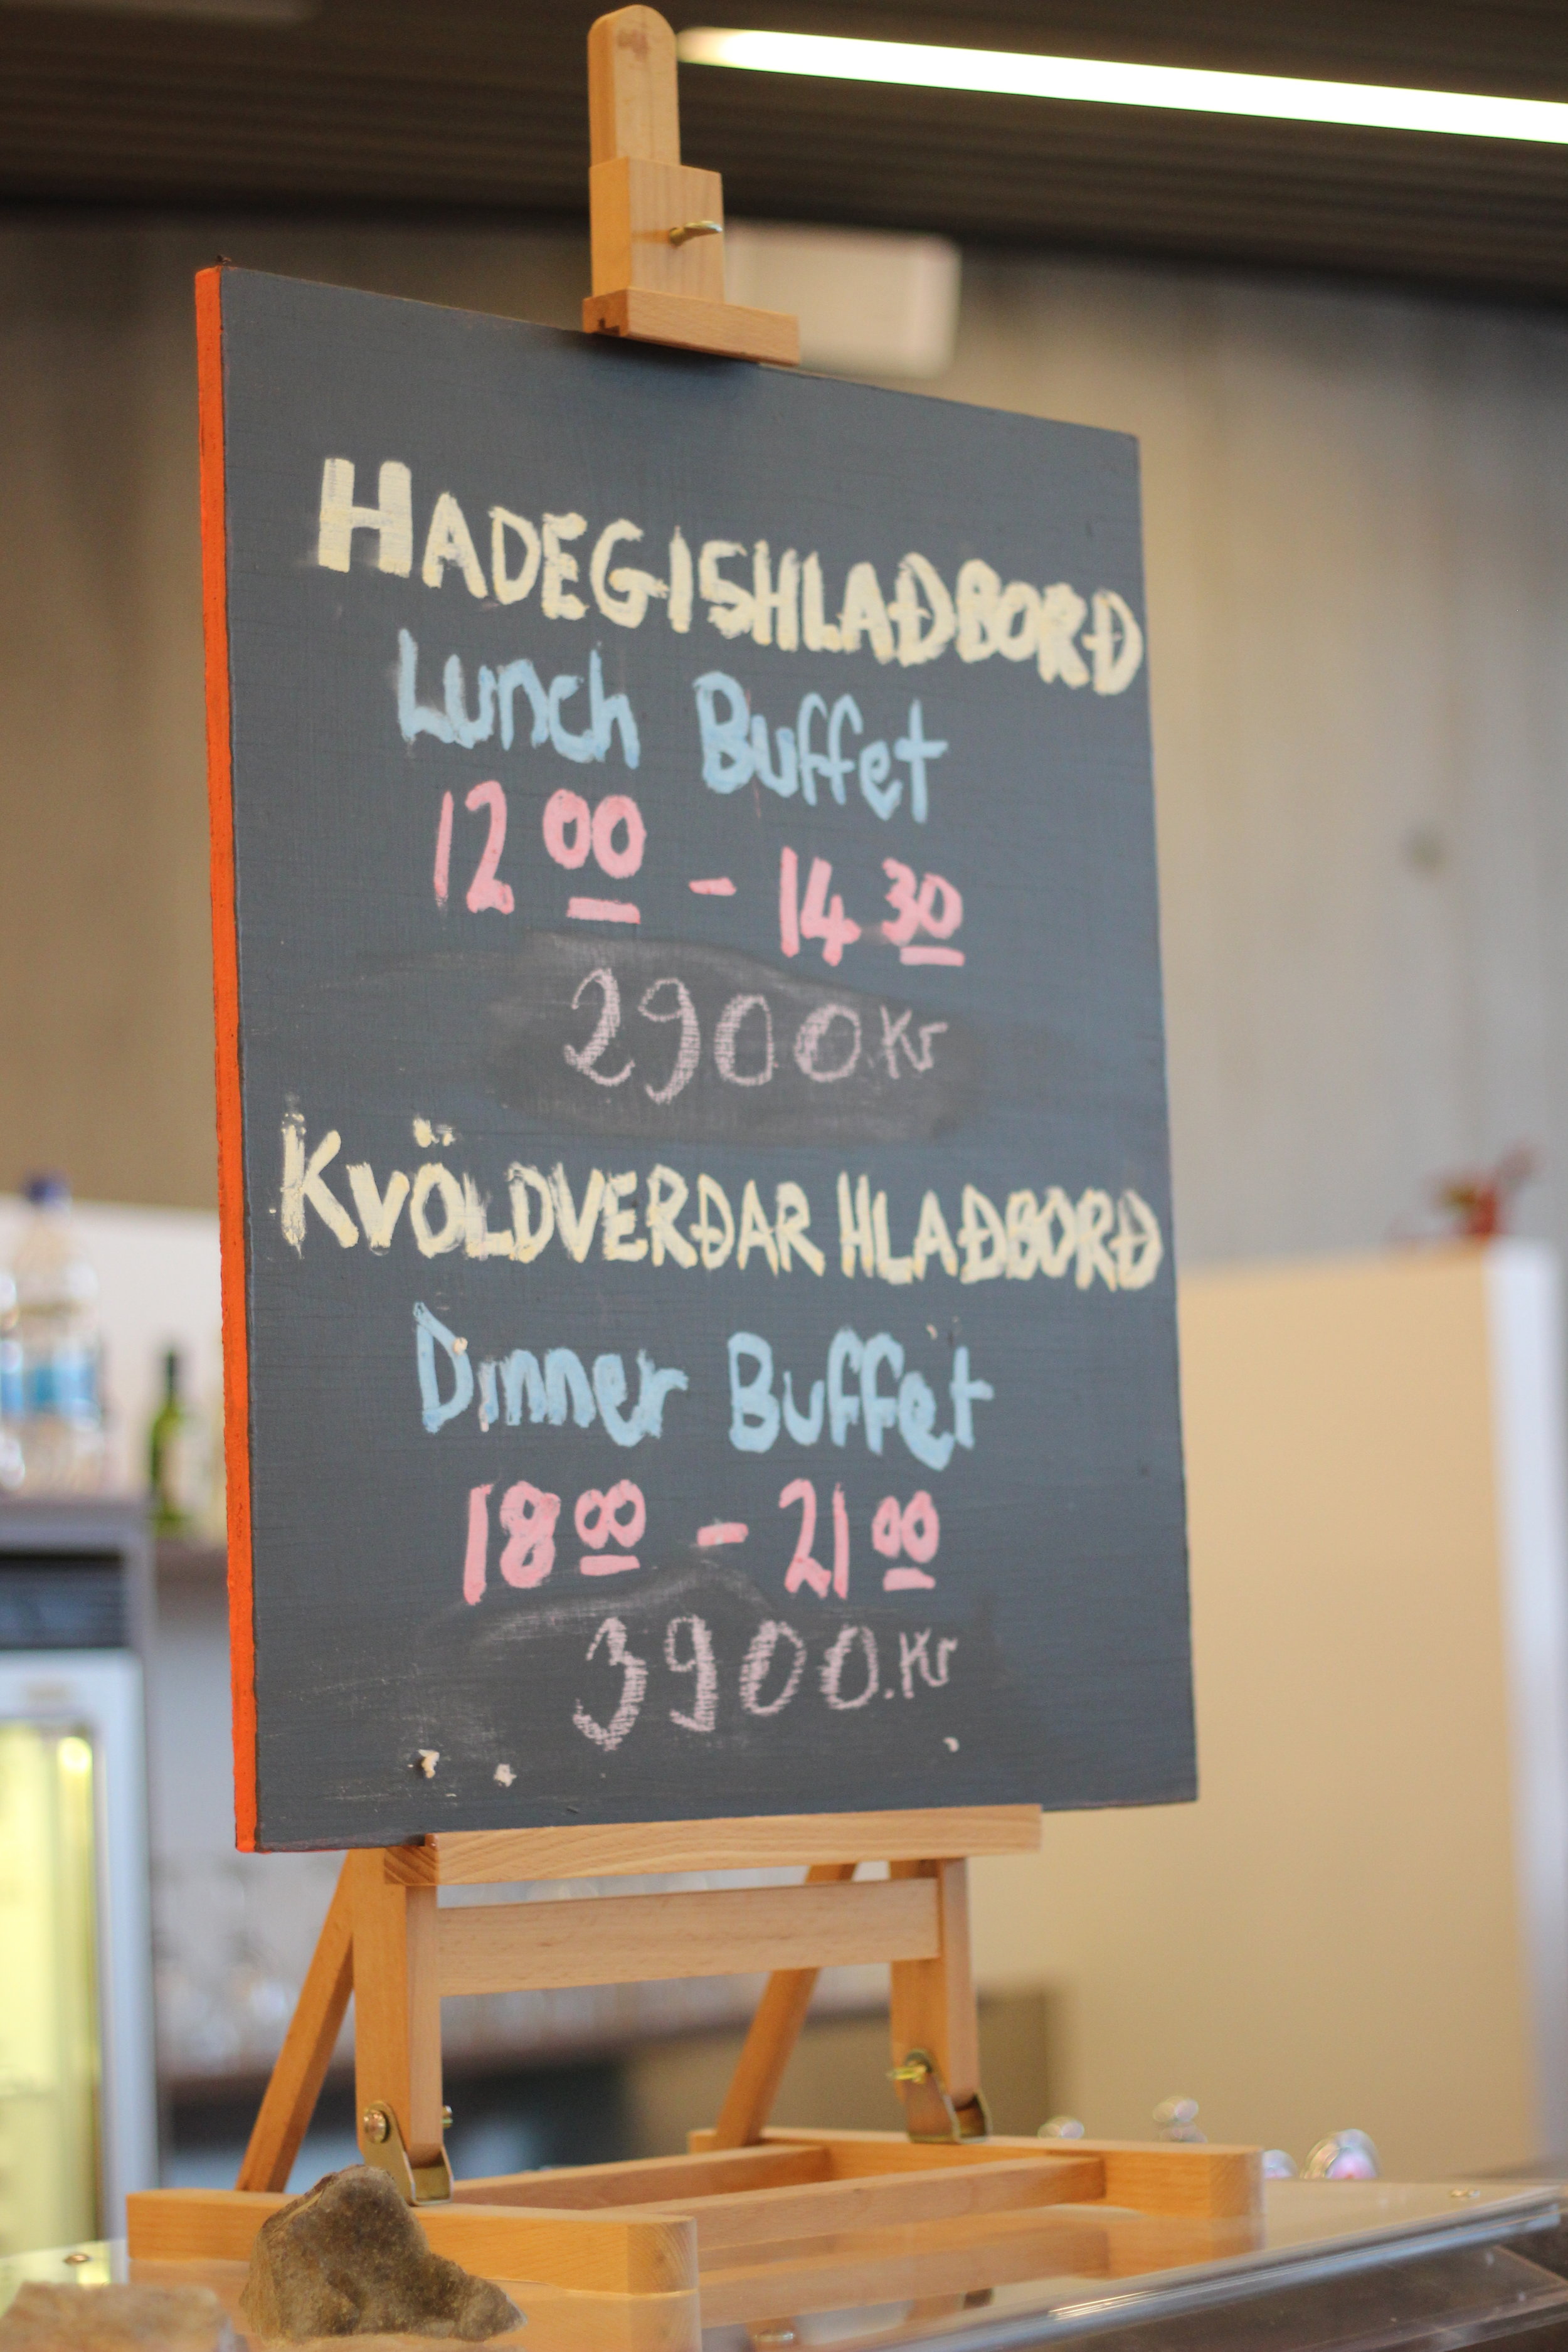 HADEGISHLAÐBORÐ
Lunch Buffet
12 00 - 14 30
2900.Kr
KVÖLDVERÐAR HLAÐBORÐ
Dinner Buffet
18 00 - 21 00
3900.Kr